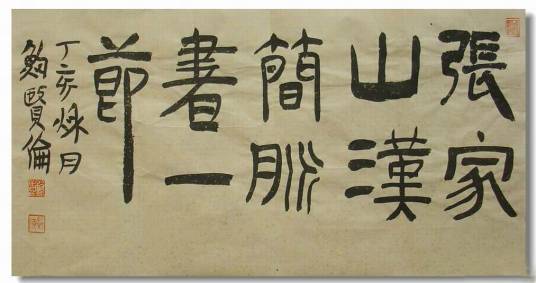 張家
山漢
簡脈
書一
節
丁亥秌月
鮑賢倫